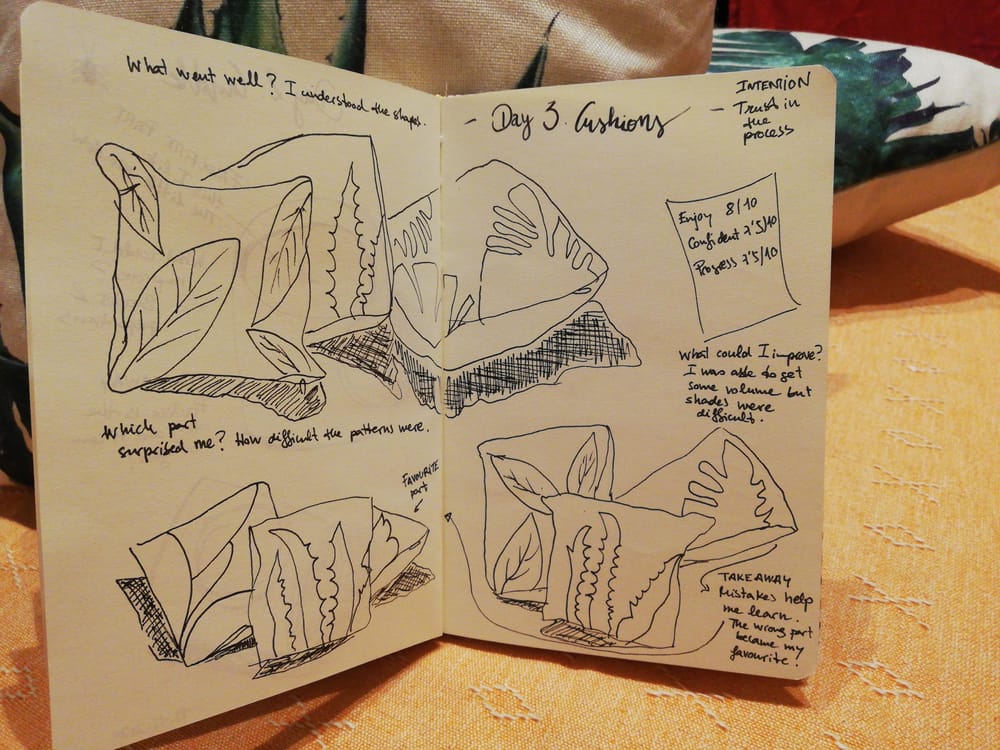 What went well? I understood the shapes.
Which part
surprised me? How difficult the patterns were.
FAVOURITE
part
- Day 3. Cushions
INTENTION
- Trust in
the
process
Enjoy 8/10
Confident 7'5/10
Progress 7'5/10
What could I improve?
I was able to get
some volume but
shades were
difficult.
TAKEAWAY
Mistakes help
me learn.
The wrong part
became my
favourite!